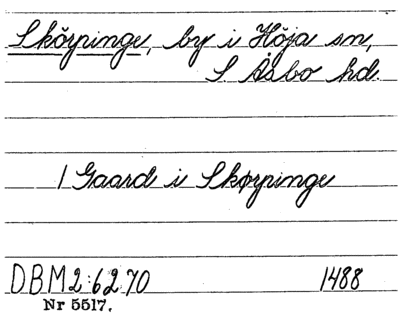 Skörpinge, by i Höja sn,
S Åsbo hd.
1 Gaard i Skørpinge
DBM 2:6270 1488
Nr 5517.